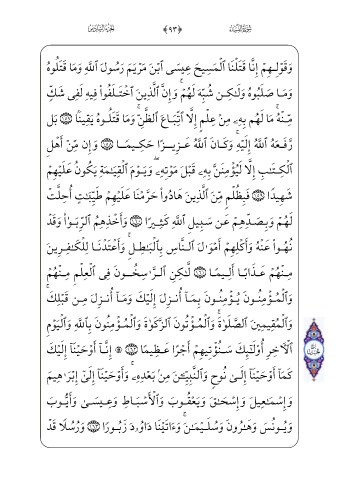 سُورَةُ النِّسَاءِ ﴿٩٣﴾ الجُزْءُ السَّادِسُ
وَقَوْلِهِمْ إِنَّا قَتَلْنَا ٱلْمَسِيحَ عِيسَى ٱبْنَ مَرْيَمَ رَسُولَ ٱللَّهِ وَمَا قَتَلُوهُ
وَمَا صَلَبُوهُ وَلَٰكِن شُبِّهَ لَهُمْ ۚ وَإِنَّ ٱلَّذِينَ ٱخْتَلَفُوا۟ فِيهِ لَفِى شَكٍّ
مِّنْهُ ۚ مَا لَهُم بِهِۦ مِنْ عِلْمٍ إِلَّا ٱتِّبَاعَ ٱلظَّنِّ ۚ وَمَا قَتَلُوهُ يَقِينًۢا ﴿١٥٧﴾ بَل
رَّفَعَهُ ٱللَّهُ إِلَيْهِ ۚ وَكَانَ ٱللَّهُ عَزِيزًا حَكِيمًا ﴿١٥٨﴾ وَإِن مِّنْ أَهْلِ
ٱلْكِتَٰبِ إِلَّا لَيُؤْمِنَنَّ بِهِۦ قَبْلَ مَوْتِهِۦ ۖ وَيَوْمَ ٱلْقِيَٰمَةِ يَكُونُ عَلَيْهِمْ
شَهِيدًا ﴿١٥٩﴾ فَبِظُلْمٍ مِّنَ ٱلَّذِينَ هَادُوا۟ حَرَّمْنَا عَلَيْهِمْ طَيِّبَٰتٍ أُحِلَّتْ
لَهُمْ وَبِصَدِّهِمْ عَن سَبِيلِ ٱللَّهِ كَثِيرًا ﴿١٦٠﴾ وَأَخْذِهِمُ ٱلرِّبَوٰا۟ وَقَدْ
نُهُوا۟ عَنْهُ وَأَكْلِهِمْ أَمْوَٰلَ ٱلنَّاسِ بِٱلْبَٰطِلِ ۚ وَأَعْتَدْنَا لِلْكَٰفِرِينَ
مِنْهُمْ عَذَابًا أَلِيمًا ﴿١٦١﴾ لَّٰكِنِ ٱلرَّٰسِخُونَ فِى ٱلْعِلْمِ مِنْهُمْ
وَٱلْمُؤْمِنُونَ يُؤْمِنُونَ بِمَآ أُنزِلَ إِلَيْكَ وَمَآ أُنزِلَ مِن قَبْلِكَ ۚ
وَٱلْمُقِيمِينَ ٱلصَّلَوٰةَ ۚ وَٱلْمُؤْتُونَ ٱلزَّكَوٰةَ وَٱلْمُؤْمِنُونَ بِٱللَّهِ وَٱلْيَوْمِ
ٱلْءَاخِرِ أُو۟لَٰٓئِكَ سَنُؤْتِيهِمْ أَجْرًا عَظِيمًا ﴿١٦٢﴾ ۞ إِنَّآ أَوْحَيْنَآ إِلَيْكَ
كَمَآ أَوْحَيْنَآ إِلَىٰ نُوحٍ وَٱلنَّبِيِّـۧنَ مِنۢ بَعْدِهِۦ ۚ وَأَوْحَيْنَآ إِلَىٰٓ إِبْرَٰهِيمَ
وَإِسْمَٰعِيلَ وَإِسْحَٰقَ وَيَعْقُوبَ وَٱلْأَسْبَاطِ وَعِيسَىٰ وَأَيُّوبَ
وَيُونُسَ وَهَٰرُونَ وَسُلَيْمَٰنَ ۚ وَءَاتَيْنَا دَاوُۥدَ زَبُورًا ﴿١٦٣﴾ وَرُسُلًا قَدْ